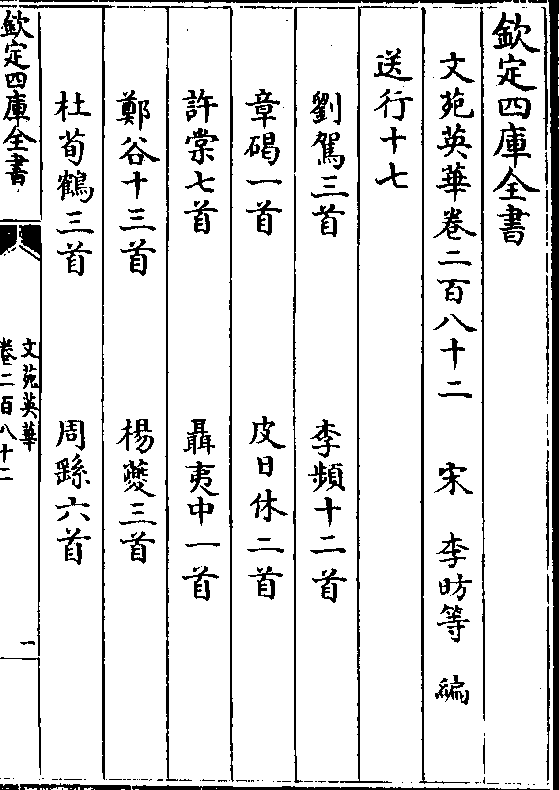 欽定四庫全書
文苑英華卷二百八十二 宋 李昉等 編
送行十七
劉駕三首 李頻十二首
章碣一首 皮日休二首
許棠七首 聶夷中一首
鄭谷十三首 楊夔三首
杜荀鶴三首 周繇六首
欽定四庫全書
文苑英華
卷二百八十二
一